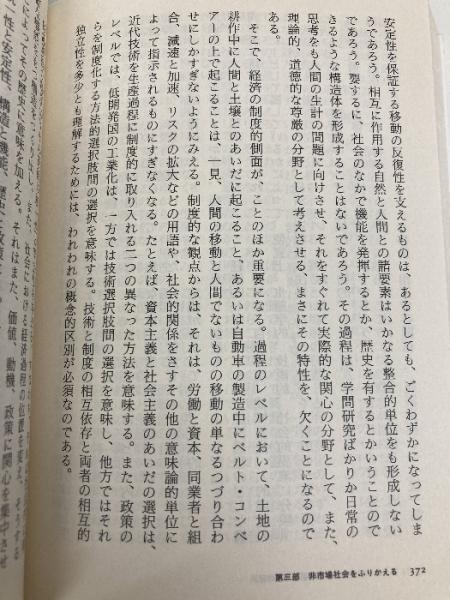 安定性を保証する移動の反復性を支えるものは、あるとしても、ごくわずかになってしま
うであろう。相互に作用する自然と人間との諸要素はいかなる整合的単位をも形成しない
であろう。要するに、社会のなかで機能を発揮するとか、歴史を有するとかいうことので
きるような構造体を形成することはないであろう。その過程は、学問研究ばかりか日常の
思考をも人間の生計の問題に向けさせ、それをすぐれて実際的な関心の分野として、また、
理論的、道徳的な尊厳の分野として考えさせる、まさにその特性を、欠くことになるので
ある。
そこで、経済の制度的側面が、ことのほか重要になる。過程のレベルにおいて、土地の
耕作中に人間と土壌とのあいだに起こること、あるいは自動車の製造中にベルト・コンベ
アーの上で起こることは、一見、人間の移動と人間でないものの移動の単なるつづり合わ
せにしかすぎないようにみえる。制度的な観点からは、それは、労働と資本、同業者と組
合、減速と加速、リスクの拡大などの用語や、社会的関係をさすその他の意味論的単位に
よって指示されるものにすぎなくなる。たとえば、資本主義と社会主義のあいだの選択は、
近代技術を生産過程に制度的に取り入れる二つの異なった方法を意味する。また、政策の
レベルでは、低開発国の工業化は、一方では技術選択肢間の選択を意味し、他方ではそれ
らを制度化する方法的選択肢間の選択を意味する。技術と制度の相互依存と両者の相互的
独立性を多少とも理解するためには、われわれの概念的区別が必須なのである。
また、社会における経済過程の位置を変え、そうする
によってその歴史に意味を加える。それはまた、価値、動機、政策に関心を集中させ
性と安定性、構造と機能、歴史と政策
第三部 非市場社会をふりかえる 372